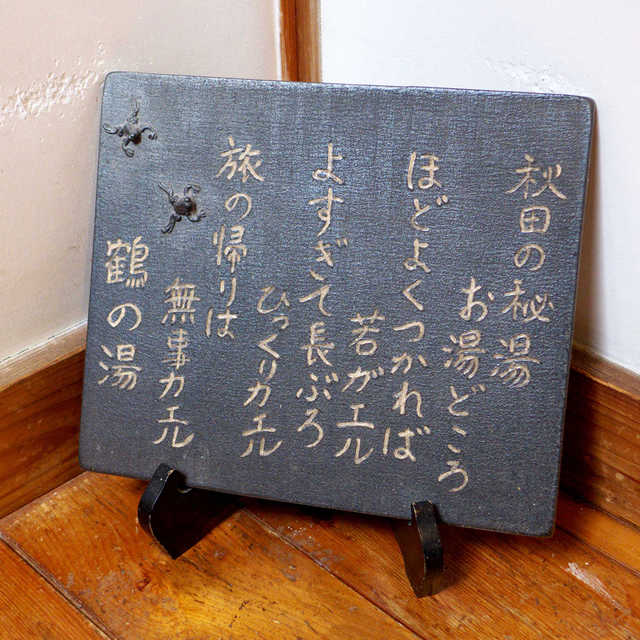 秋田の秘湯
お湯どころ
ほどよくつかれば
若がエル
よすぎて長ぶろ
ひっくりカエル
旅の帰りは
無事カエル
鶴の湯